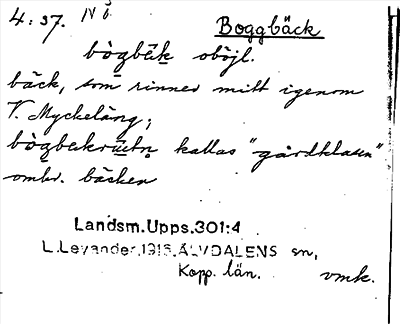 4: 37. IV 6
Boggbäck
bògbäk oböjl.
bäck, som rinner mitt igenom
V. Myckeläng;
bògbäkrųętn kallas "gårdklasen"
omkr. bäcken
Landsm.Upps.301:4
L.Levander,1916.ÄLVDALENS sn,
Kopp. län. vmk.